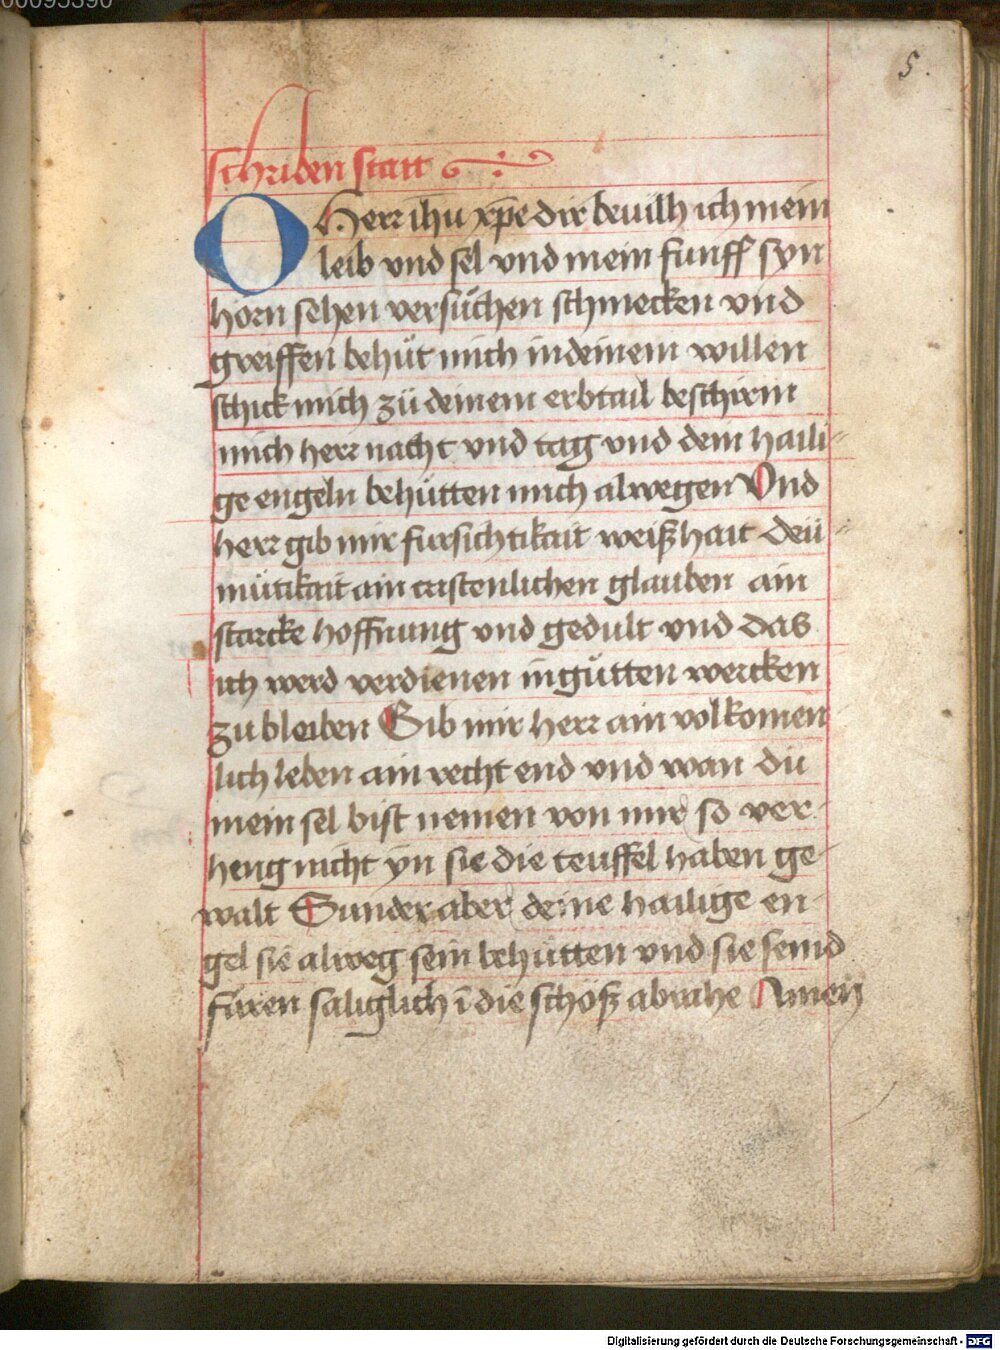 00095390
5.
schriben statt
O Herr ihu xp̄e dir beuilh ich mein
leib vnd sel vnd mein funff syn
hörn sehen versuͦchen schmecken vnd
greiffen behuͤt mich in deinem willen
schick mich zuͦ deinem erbtail beschirm
mich herr nacht vnd tag vnd dein haili-
ge engeln behuͤtten mich alwegen Vnd
herr gib mir fursichtikait weißhait deü-
mütikait ain cristenlichen glauben ain
starcke hoffnung vnd gedult vnd das
ich werd verdienen in guͦtten wercken
zu bleiben Gib mir herr ain volkomen
lich leben ain recht end vnd wan dü
mein sel bist nemen von mir so ver-
heng nicht yn sie die teuffel haben ge-
walt Sunder aber deine hailige en-
gel sie alweg sein behuͤtten vnd sie seind
fuͤren saliglich ī die schoß abrahe Amen
Digitalisierung gefördert durch die Deutsche Forschungsgemeinschaft - DFG